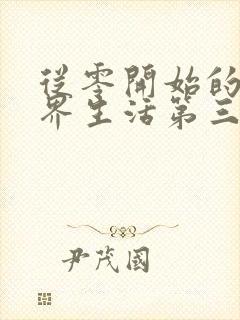 從零開始的
界生活第三
尹茂國